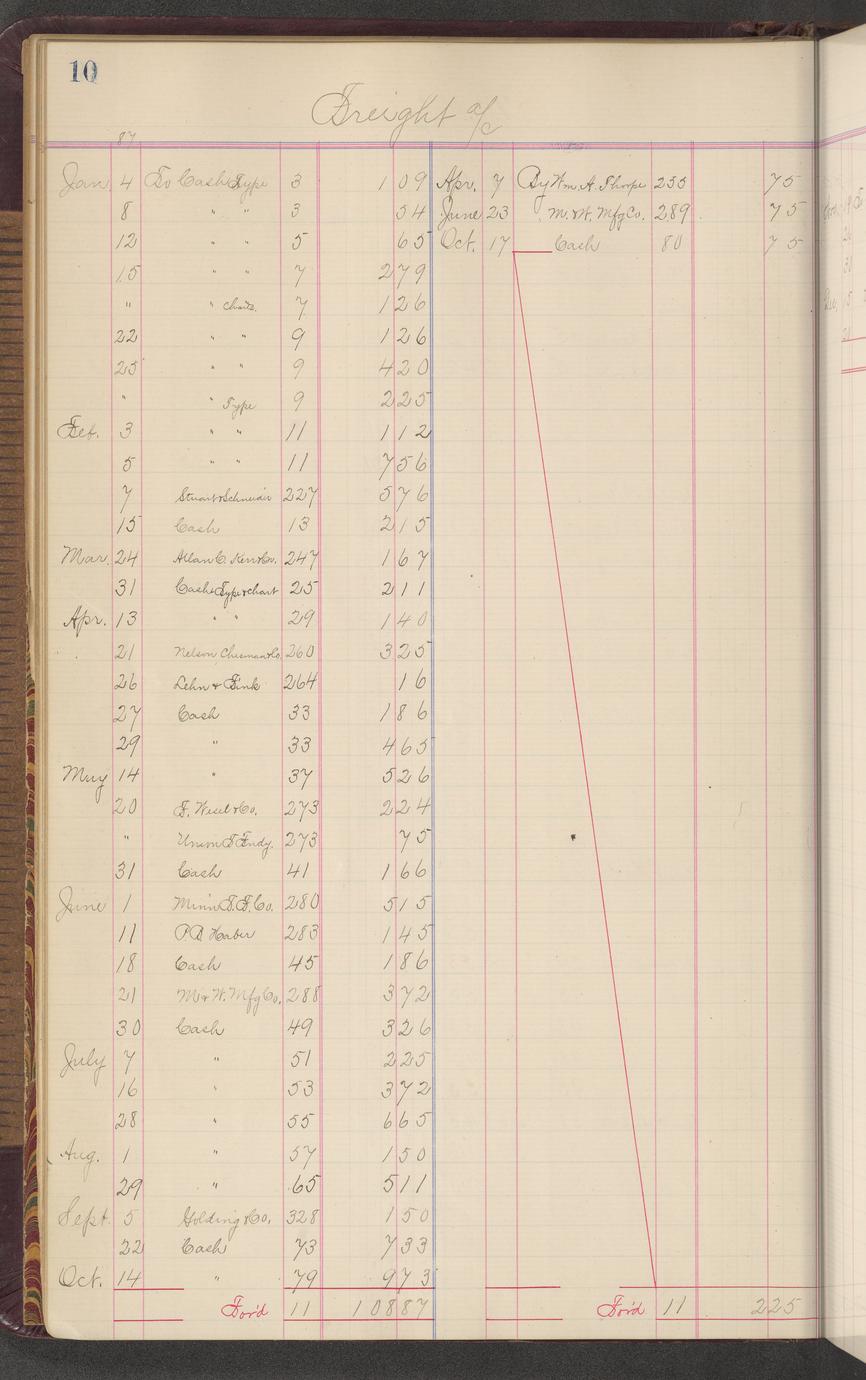 10
Freight a/c
87
Jan. 4 To Cash Type 3 1 09 Apr. 7 By Wm. A. Thorpe 255 75
8 " " 3 54 June 23 M. & W. Mfg Co. 289 75
12 " " 5 65 Oct. 17 Cash 80 75
15 " " 7 2 79
" " Chaits. 7 1 26
22 " " 9 1 26
25 " " 9 4 20
" " Type 9 2 25
Feb. 3 " " 11 1 12
5 " " 11 7 56
7 Stuart & Schneider 227 5 76
15 Cash 13 2 15
Mar. 24 Allan C. Kerr & Co. 247 1 67
31 Cash Type & chart 25 2 11
Apr. 13 " " 29 1 40
21 Nelson Chesman & Co. 260 3 25
26 Lehn & Fink 264 16
27 Cash 33 1 86
29 " 33 4 65
May 14 " 37 5 26
20 F. Wesel & Co. 273 2 24
" Union T. Fndy. 273 75
31 Cash 41 1 66
June 1 Minn T. F. Co. 280 5 15
11 P. B. Haber 283 1 45
18 Cash 45 1 86
21 M & W. Mfg Co. 288 3 72
30 Cash 49 3 26
July 7 " 51 2 25
16 " 53 3 72
28 " 55 6 65
Aug. 1 " 57 1 50
29 " 65 5 11
Sept. 5 Golding & Co. 328 1 50
22 Cash 73 7 33
Oct. 14 " 79 9 73
For'd 11 108 87 For'd 11 2 25